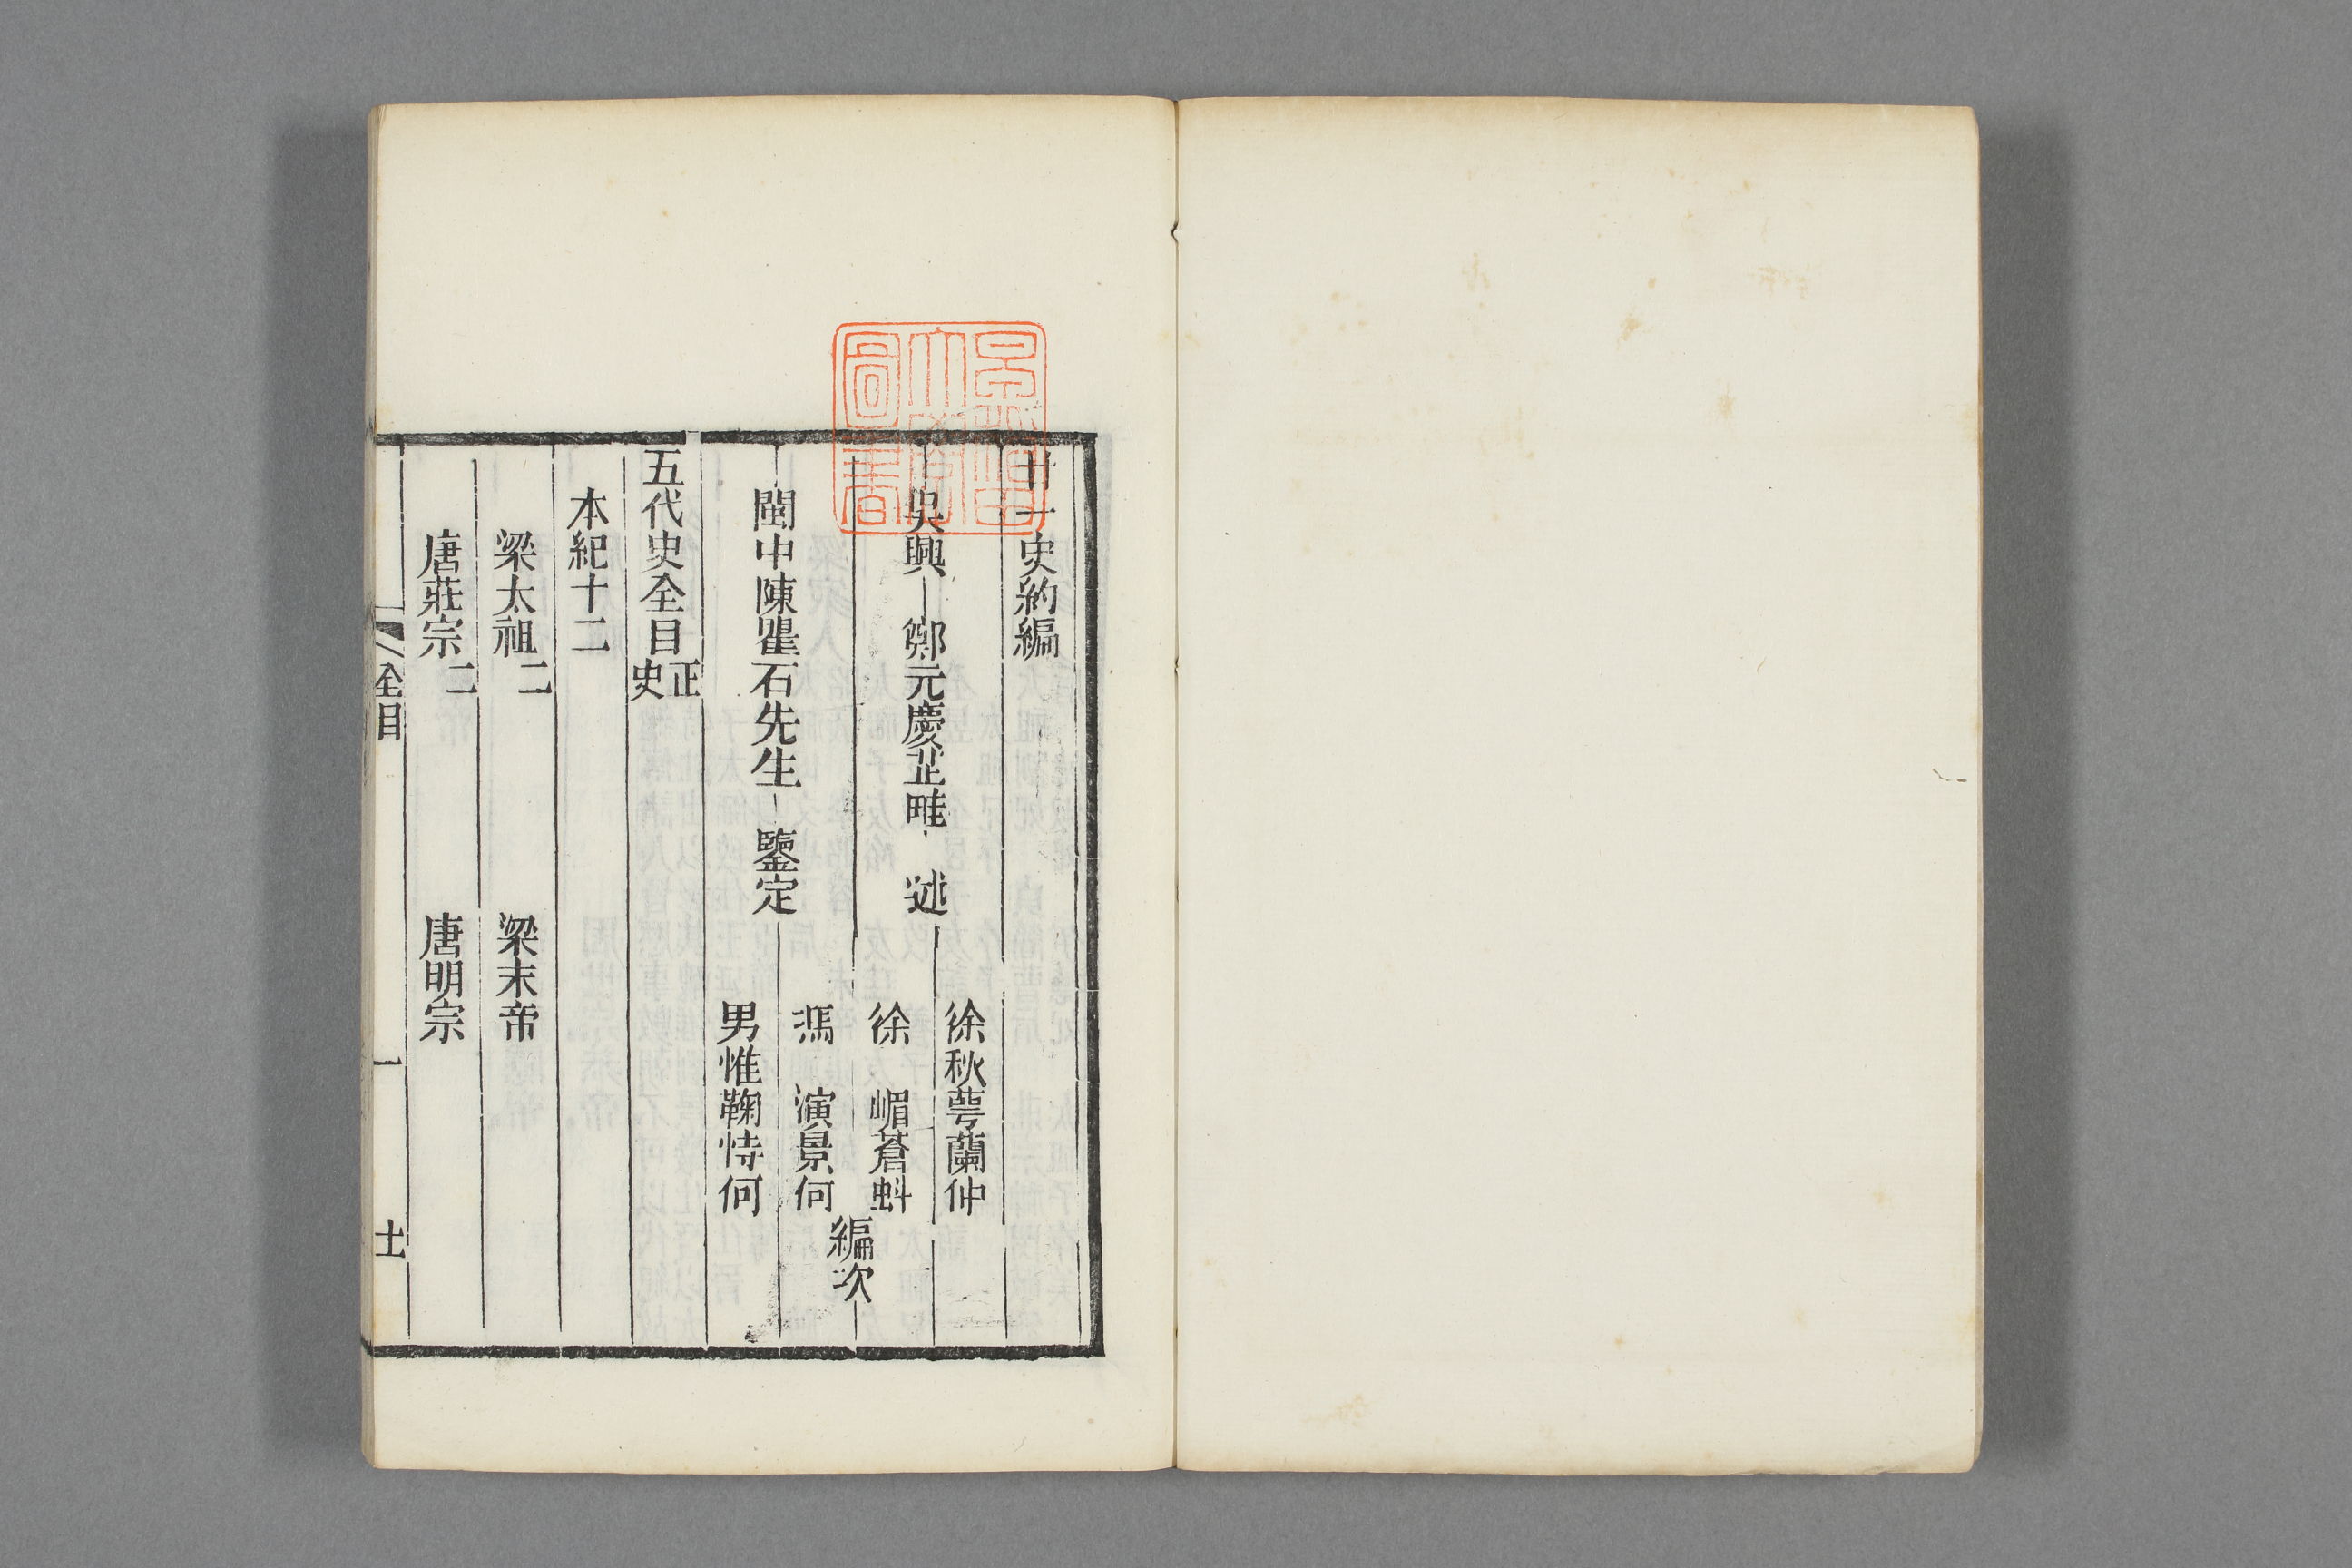 廿一史約編
吳興 鄭元慶芷畦 述
閩中陳瞿石先生 鑒定
徐秋蕚蘭仲
徐 嵋蒼虯
馮 演景何
男惟鞠恃何
編次
五代史全目正史
本紀十二
梁太祖二 梁末帝
唐莊宗二 唐明宗
全目 一
圖書